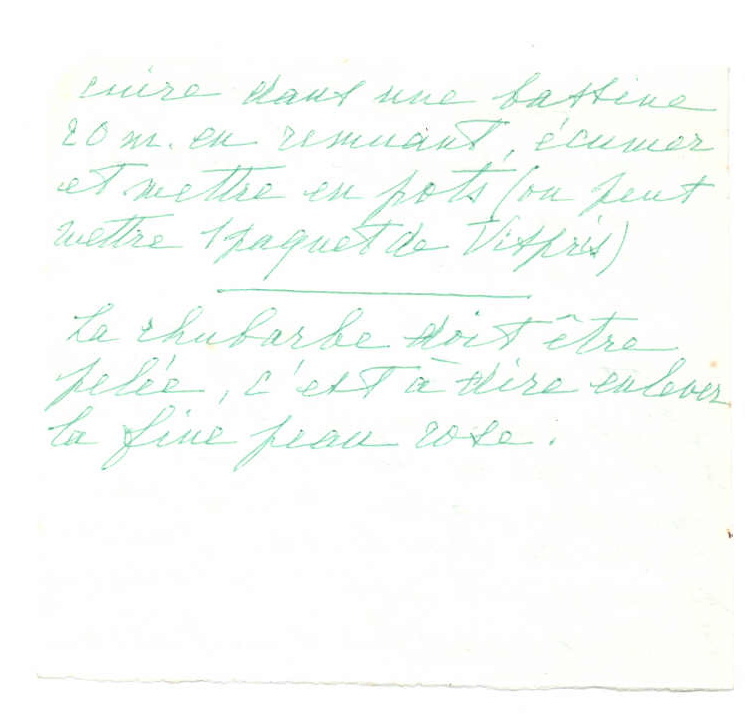 cuire dans une bassine
20 m. en remuant, écumer
et mettre en pots (on peut
mettre 1 paquet de Vitpris)
La rhubarbe doit être
pelée, c'est à dire enlever
la fine peau rose.